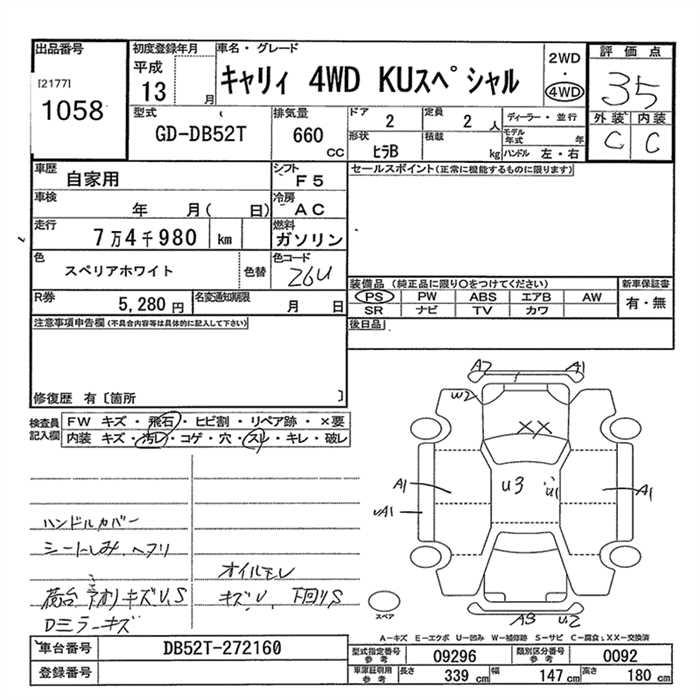 出品番号 初度登録年月 車名・グレード 評価点
[2177]
1058
平成
13 月
キャリィ 4WD KUスペシャル
2WD
・
4WD
35
外装 内装
C C
型式 排気量 ドア 定員 ディーラー・並行
GD-DB52T 660 CC 2 2 人
形状 積載 モデル年式 年
ヒラB kg ハンドル 左・右
車歴 シフト セールスポイント(正常に機能するものに限ります)
自家用 F5
車検 冷房
年 月( 日) AC
走行 燃料
7万4千980 km ガソリン
色 色替 色コード
スペリアホワイト 26U
装備品 (純正品に限り○をつけてください) 新車保証書
PS PW ABS エアB AW 有・無
SR ナビ TV カワ
R券 5,280円 名変通知期限 月 日
後日品
注意事項申告欄(不具合内容等は具体的に記入して下さい)
修復歴 有〔箇所 〕
検査員記入欄
FW キズ・飛石・ヒビ割・リペア跡・×要
内装 キズ・汚レ・コゲ・穴・スレ・キレ・破レ
ハンドルカバー
シートしみ、ヘタリ
オイルモレ
荷台 アオリキズU,S
キズ、U、下回りS
Dミラーキズ
A2 A1
W2
XX
A1 U3 U1 A1
UA1
A3 U2
スペア
A-キズ E-エクボ U-凹み W-補修跡 S-サビ C-腐食 XX-交換済
車台番号 DB52T-272160
型式指定番号 参考 09296 類別区分番号 参考 0092
登録番号
車庫証明用 参考 長さ 339 cm 幅 147 cm 高さ 180 cm